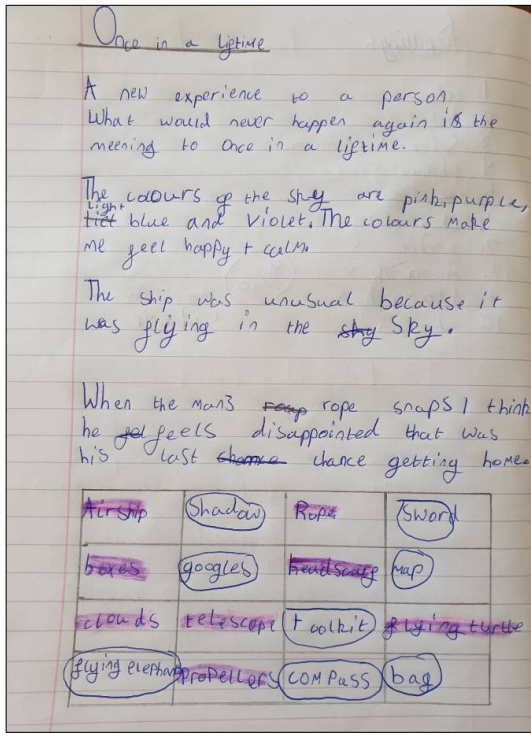 Once in a liftime
A new experience to a person
What would never happen again is the
meening to Once in a liftime.
The colours of the sky are pink, purple,
light
blue and violet. The colours make
me feel happy + calm.
The ship was unusual because it
was flying in the sky Sky.
When the man3 rope snaps I think
he feels disappointed that was
his last chance chance getting home.
Airship Shadow Rope Sword
boxes googles headscarf map
clouds telescope toolkit flying turtle
flying elephant propellers compass bag